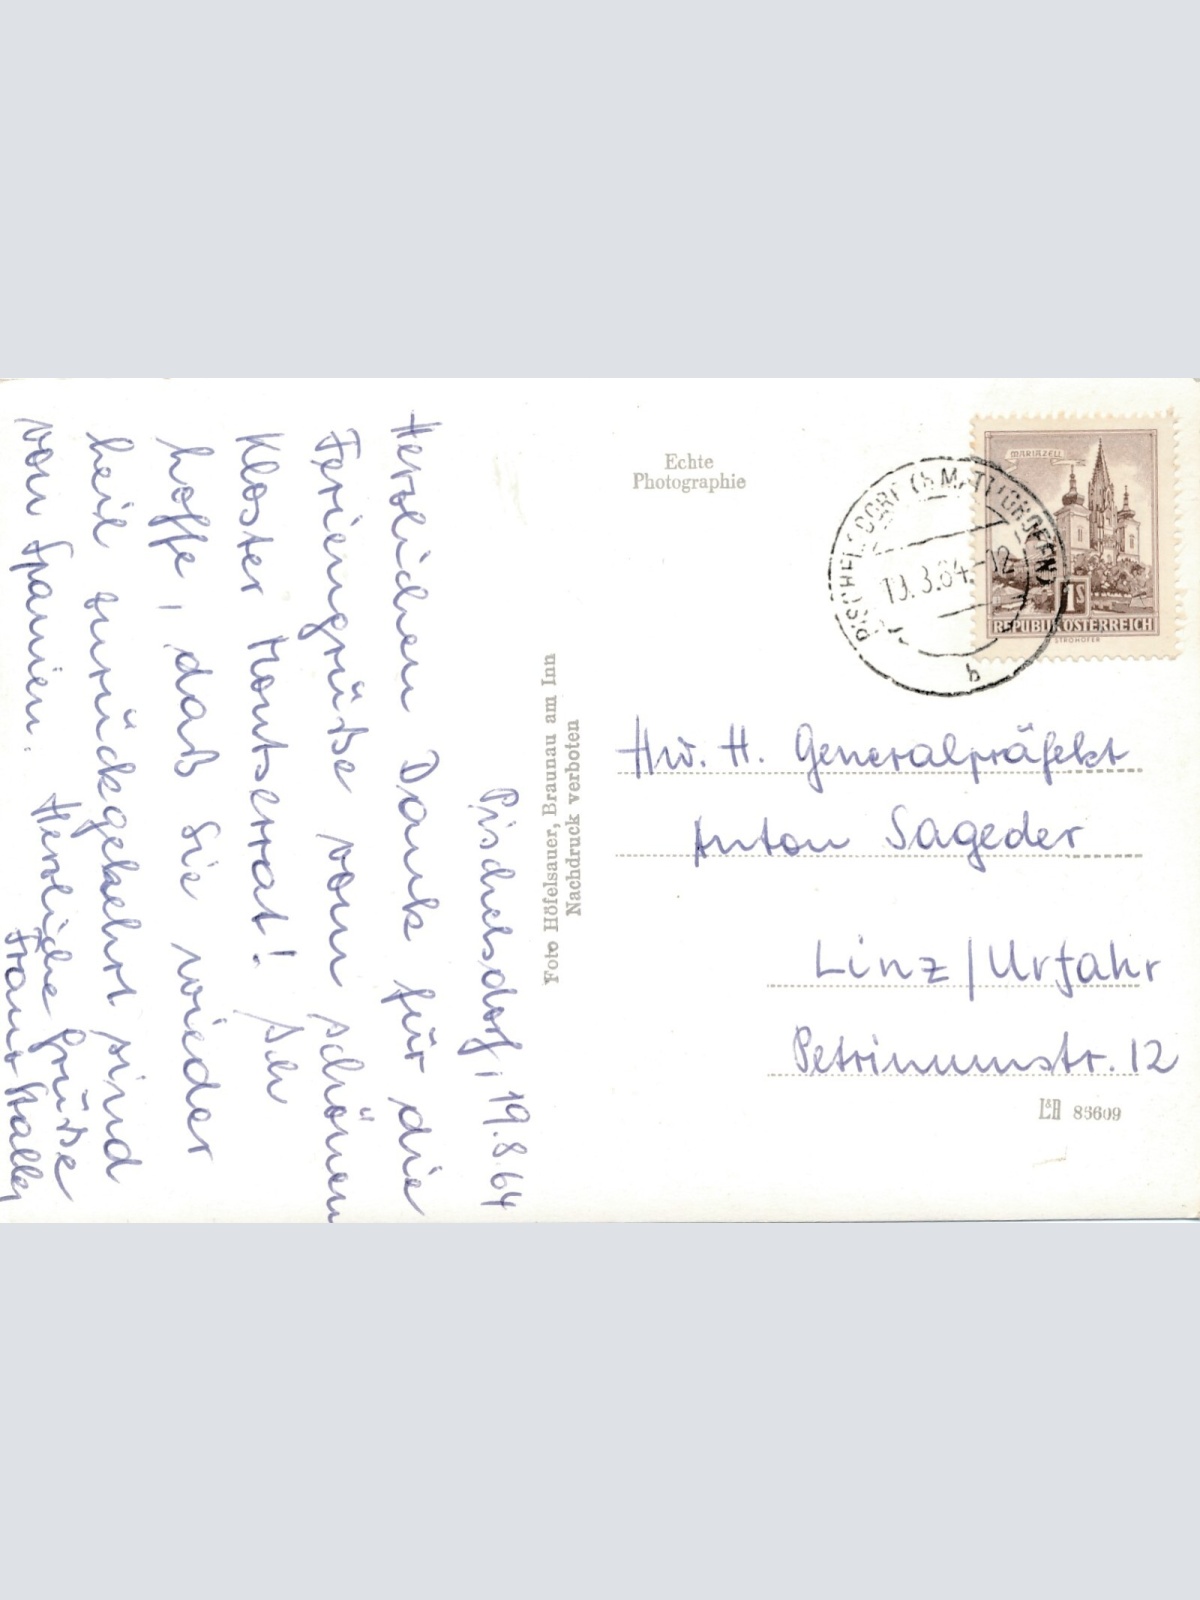 Pischelsdorf, 19.8.64
Herzlichen Dank für die
Feriengrüße vom schönen
Kloster Montserrat! Ich
hoffe, daß Sie wieder
heil zurückgekehrt sind
von Spanien.
Herzliche Grüße
Franz
Foto Höfelsauer, Braunau am Inn
Nachdruck verboten
Echte
Photographie
MARIAZELL
1S
REPUBLIK ÖSTERREICH
STROHOFER
PISCHELSDORF (b. MATTIGHOFEN)
-12
b
Hw. H. Generalpräfekt
Anton Sageder
Linz/Urfahr
Petrinumstr. 12
L&R 85609